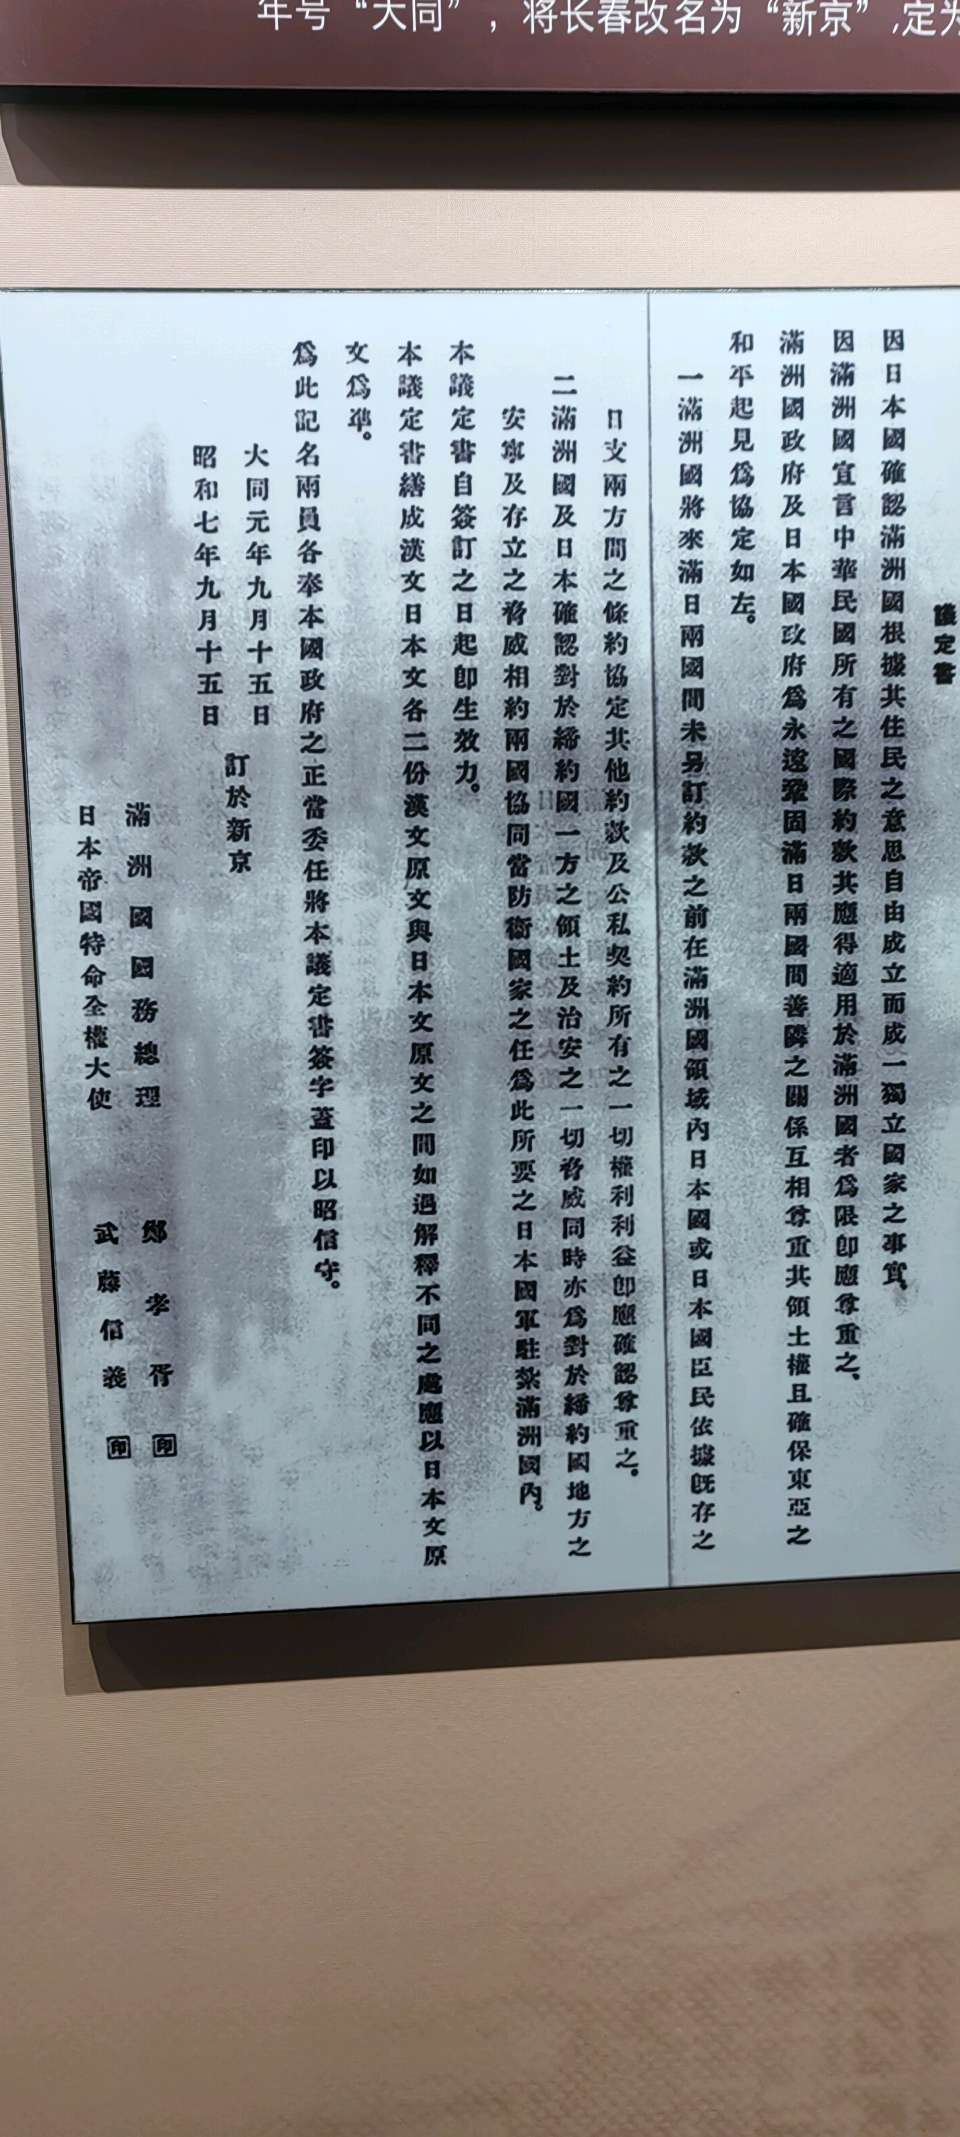 年号“大同”，将长春改名为“新京”,定为
議定書
因日本國確認滿洲國根據其住民之意思自由成立而成一獨立國家之事實、
因滿洲國宣言中華民國所有之國際約款其應得適用於滿洲國者爲限卽應尊重之、
滿洲國政府及日本國政府爲永遠鞏固滿日兩國間善隣之關係互相尊重其領土權且確保東亞之
和平起見爲協定如左。
一滿洲國將來滿日兩國間未另訂約款之前在滿洲國領域內日本國或日本國臣民依據旣存之
日支兩方間之條約協定其他約款及公私契約所有之一切權利利益卽應確認尊重之。
二滿洲國及日本確認對於締約國一方之領土及治安之一切脅威同時亦爲對於締約國地方之
安寧及存立之脅威相約兩國協同當防衞國家之任爲此所要之日本國軍駐紮滿洲國內。
本議定書自簽訂之日起卽生效力。
本議定書繕成漢文日本文各二份漢文原文與日本文原文之間如遇解釋不同之處應以日本文原
文爲準。
爲此記名兩員各奉本國政府之正當委任將本議定書簽字蓋印以昭信守。
大同元年九月十五日
昭和七年九月十五日
訂於新京
滿洲國國務總理 鄭孝胥 印
日本帝國特命全權大使 武藤信義 印